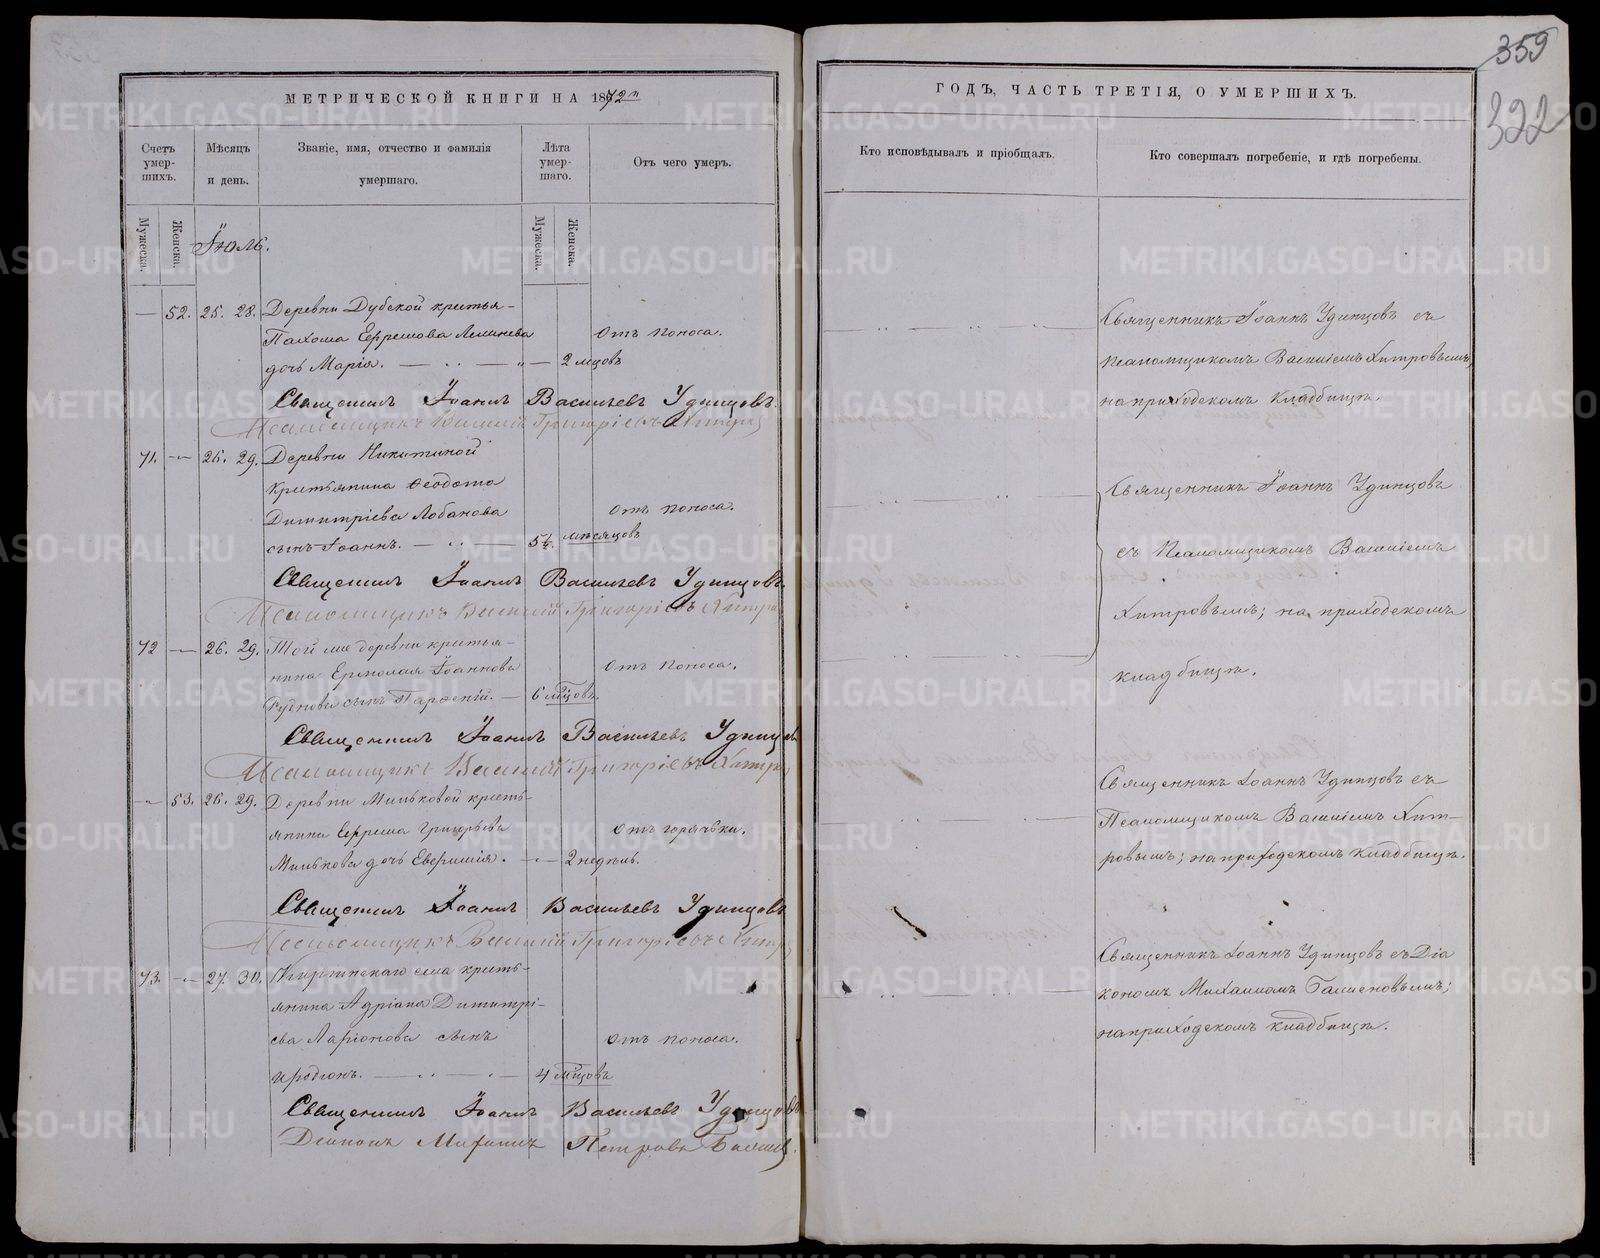 359
322
МЕТРИЧЕСКОЙ КНИГИ НА 1872й
ГОДЪ, ЧАСТЬ ТРЕТІЯ, О УМЕРШИХЪ.
Счетъ умер-шихъ.
Мѣсяцъ и день.
Званіе, имя, отчество и фамилія умершаго.
Лѣта умер-шаго.
Отъ чего умеръ.
Кто исповѣдывалъ и пріобщалъ.
Кто совершалъ погребеніе, и гдѣ погребены.
Мужеска.
Женска.
Мужеска.
Женска.
Іюль.
— 52. 25. 28. Деревни Дубской крестья-
Пахома Ефремова
дочь Марія. — 2 мцовъ
Отъ поноса.
Священникъ Іоаннъ Удинцовъ съ
псаломщикомъ Василіемъ Хитровымъ,
на приходскомъ кладбищѣ.
Священникъ Іоаннъ Васильевъ Удинцовъ.
Псаломщикъ Василій Григоріевъ Хитров
71. — 26. 29. Деревни Никитиной
крестьянина Ѳеодота
Димитріева Лобанова
сынъ Іоаннъ. — 5½ мѣсяцовъ
Отъ поноса.
Священникъ Іоаннъ Удинцовъ
съ Псаломщикомъ Василіемъ
Хитровымъ; на приходскомъ
кладбищѣ.
Священникъ Іоаннъ Васильевъ Удинцовъ.
Псаломщикъ Василій Григоріевъ Хитров
72 — 26. 29. Той же деревни крестья-
нина Ермолая Іоаннова
сынъ Парѳеній. — 6 мцовъ.
Отъ поноса.
Священникъ Іоаннъ Васильевъ Удинцов
Псаломщикъ Василій Григоріевъ Хитров
— 53. 26. 29. Деревни Мильковой кресть-
янина Ефрема Григорьева
Милькова дочь Евфимія. — 2 недѣль.
Отъ горячки.
Священникъ Іоаннъ Удинцовъ съ
Псаломщикомъ Василіемъ Хит-
ровымъ; на приходскомъ кладбищѣ.
Священникъ Іоаннъ Васильевъ Удинцовъ
Псаломщикъ Василій Григоріевъ Хитров
73. — 27. 30. села кресть-
янина Адріана Димитрі-
ева Ларіонова сынъ
Иродіонъ. — 4 мцовъ
Отъ поноса.
Священникъ Іоаннъ Удинцовъ съ Діа
кономъ Михаиломъ
на приходскомъ кладбищѣ.
Священникъ Іоаннъ Васильевъ Удинцовъ
Діаконъ Михаилъ Петровъ
METRIKI.GASO-URAL.RU